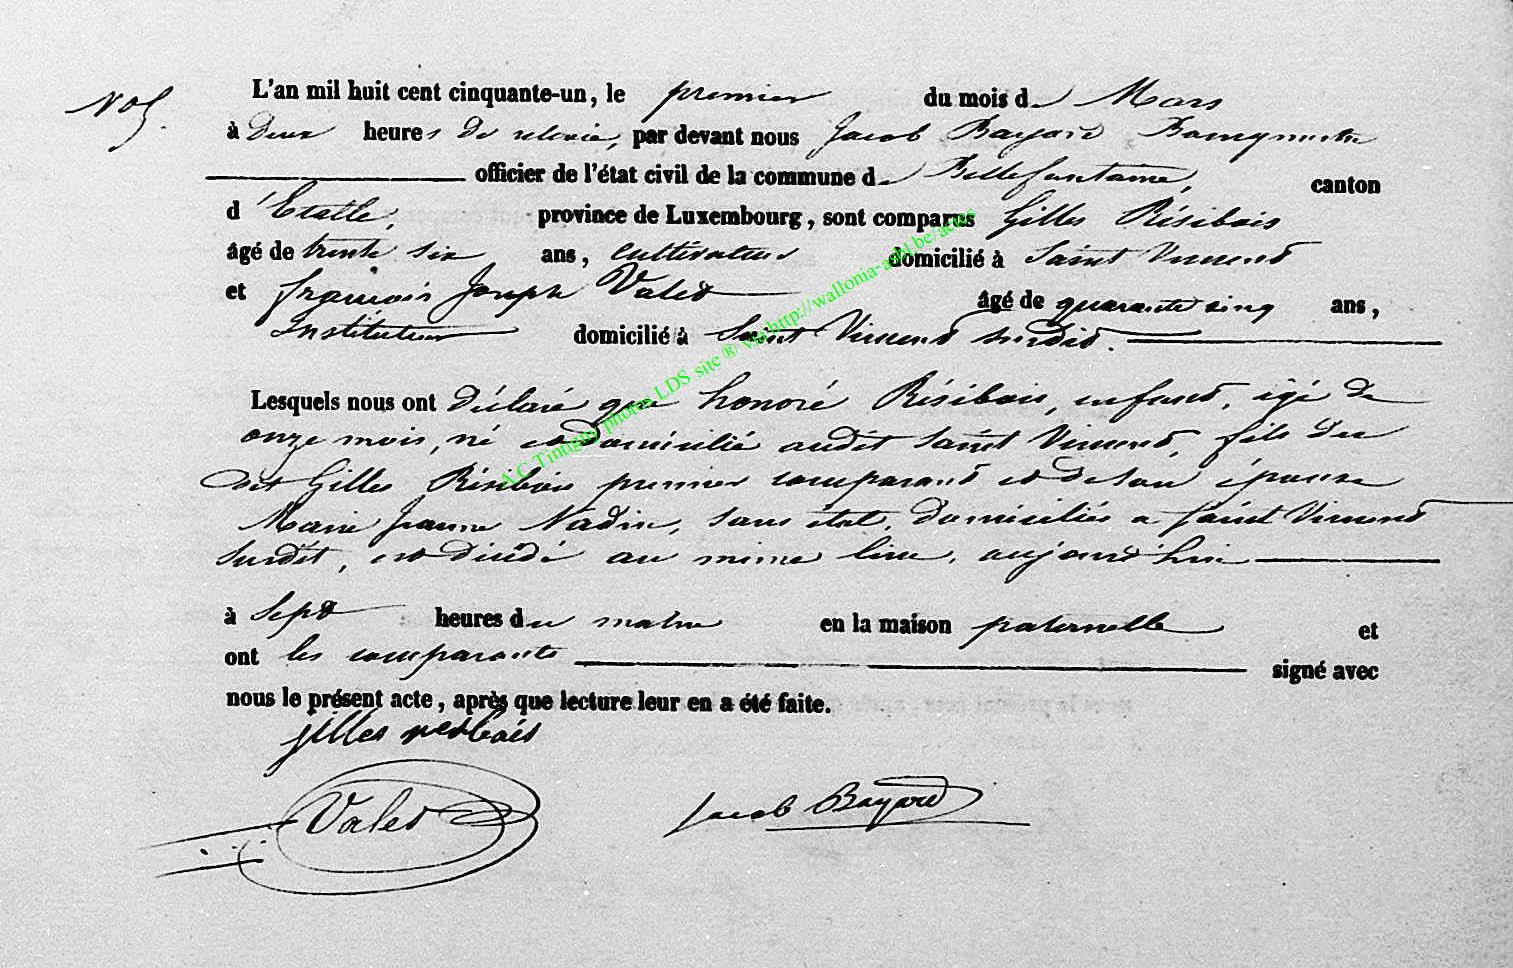 N° 5.
L'an mil huit cent cinquante-un, le premier du mois de Mars
à deux heures de relevée, par devant nous Jacob Bayard Bourgmestre
officier de l'état civil de la commune de Bellefontaine, canton
d'Etalle, province de Luxembourg, sont comparus Gilles Résibois
âgé de trente six ans, cultivateur domicilié à Saint Vincent
et françois Joseph Valet âgé de quarante cinq ans,
Instituteur domicilié à Saint Vincent susdit.
Lesquels nous ont déclaré que honoré Résibois, enfant, âgé de
onze mois, né et domicilié audit Saint Vincent, fils du
dit Gilles Résibois premier comparant et de son épouse
Marie Jeanne Nadin, sans état, domiciliés a Saint Vincent
susdit, est décédé au même lieu, aujourd'hui
à Sept heures du matin en la maison paternelle et
ont les comparants signé avec
nous le présent acte, après que lecture leur en a été faite.
jilles resibois
Valet Jacob Bayard
A.C Tintigny photos LDS site ® via http://wallonia-asbl.be/actes